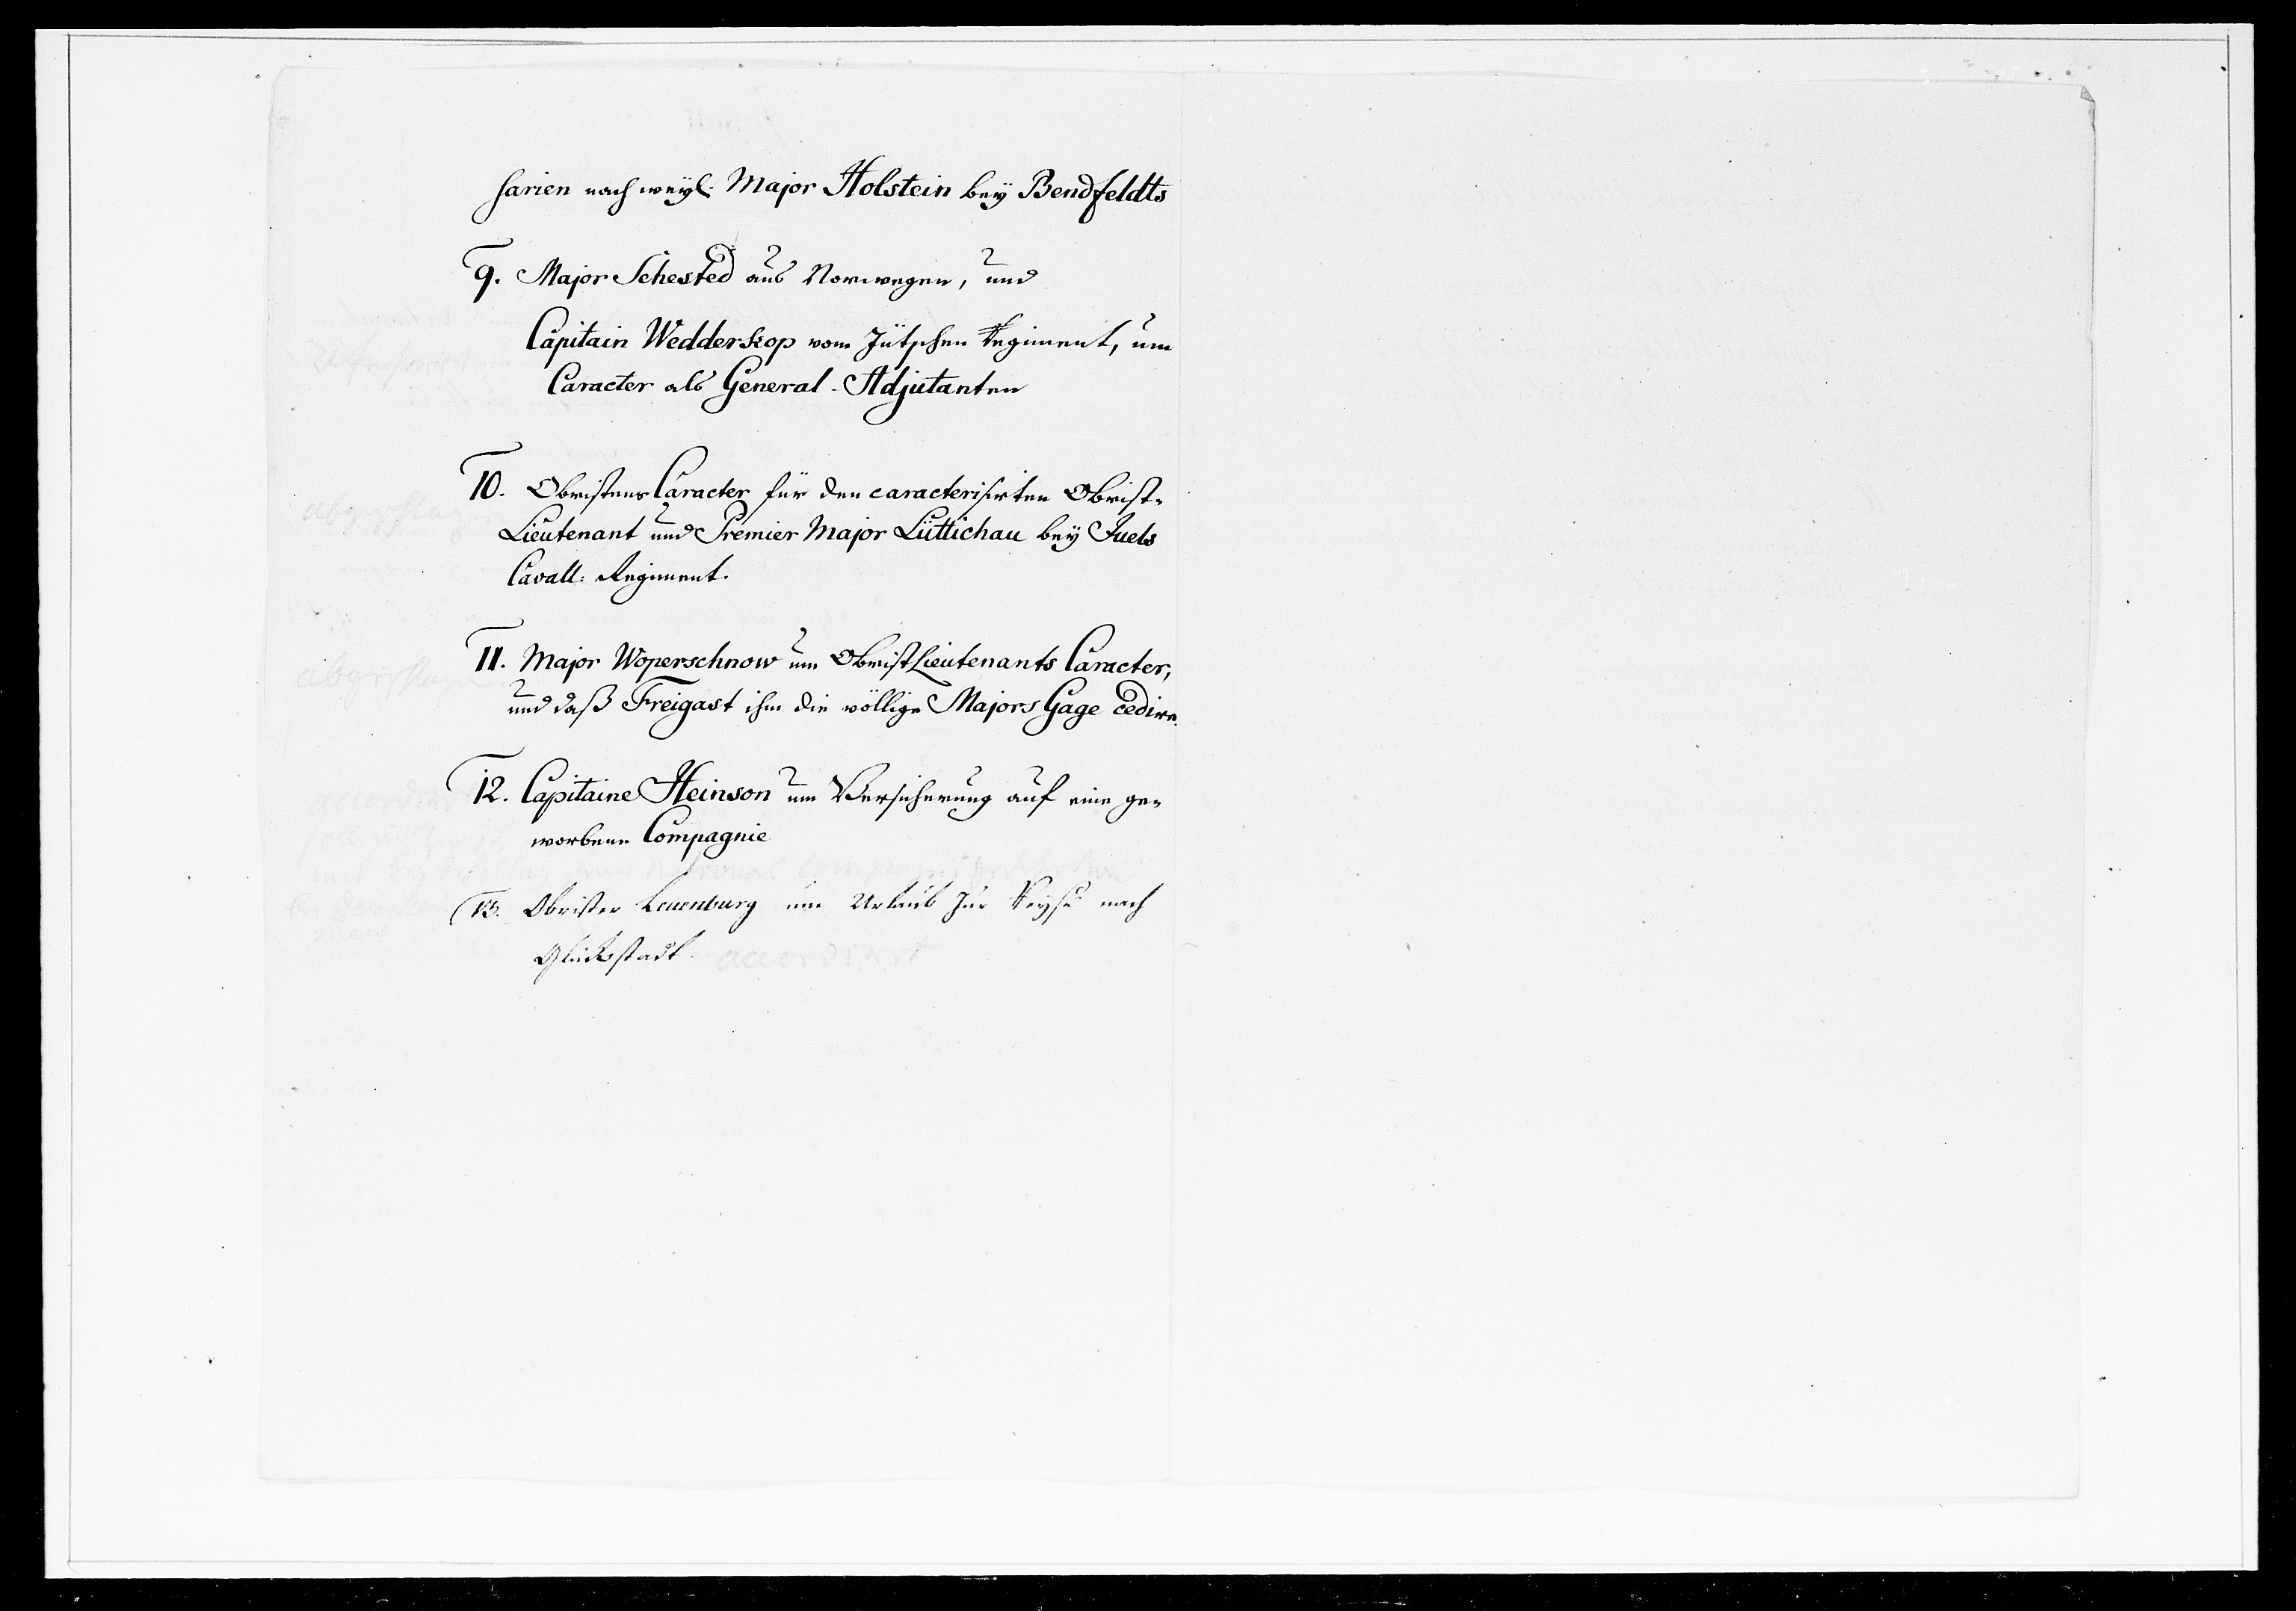 sarien nach weyl. Major Holstein bey Bendfeldts
9. Major Sehested aus Norwegen, und
Capitain Wedderkop vom Jütschen Regiment, um
Caracter als General-Adjutanten
10. Obristens Caracter für den caracterisirten Obrist-
Lieutenant und Premier Major Lüttichau bey Juels
Cavall: Regiment.
11. Major Woperschnow um ObristLieutenants Caracter,
und daß Freigast ihm die völlige Majors Gage cedire.
12. Capitaine Heinson um Versicherung auf eine ge-
worbene Compagnie
13. Obrister Leuenburg um Urlaub zur Reyse nach
Glückstadt. accordirt
abgeschlagen
abgeschlagen
accordirt